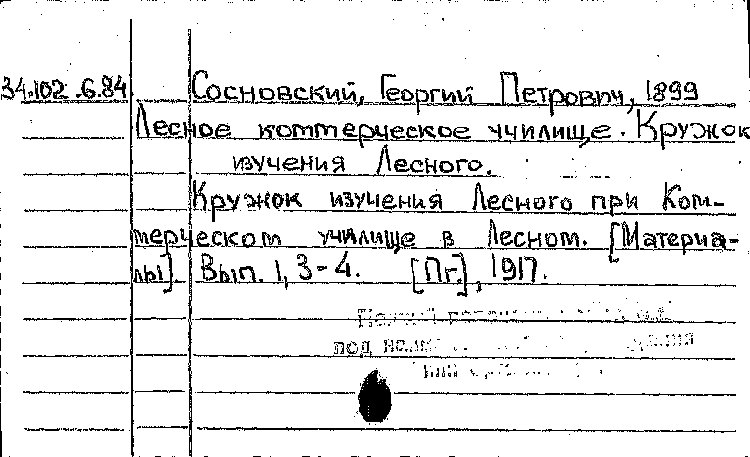 34.102.6.84 Сосновский, Георгий Петрович, 1899
Лесное коммерческое училище. Кружок
изучения Лесного.
Кружок изучения Лесного при Ком-
мерческом училище в Лесном. [Материа-
лы]. Вып. 1, 3-4. [Пг.], 1917.
под